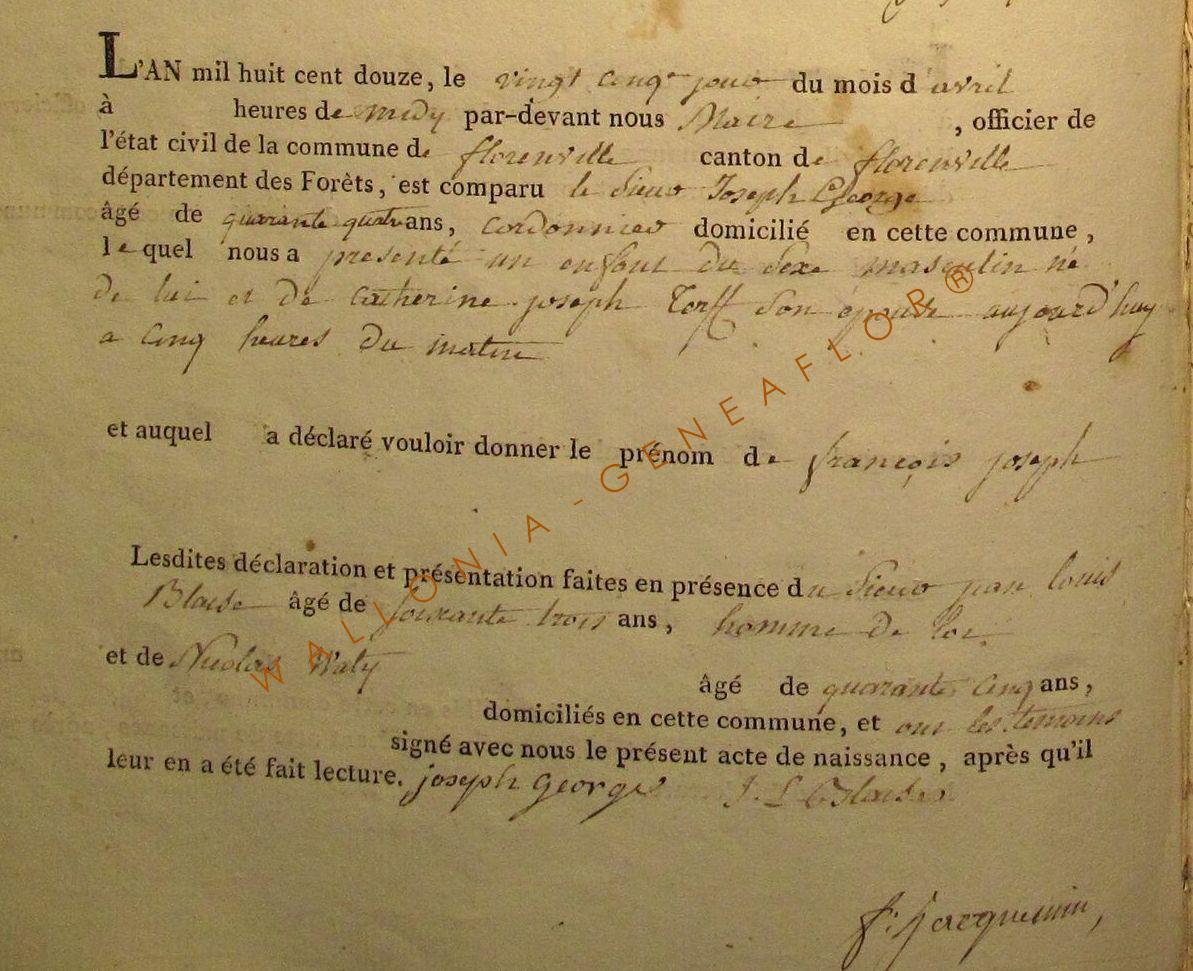 L'AN mil huit cent douze, le vingt cinq jour du mois d'avril
à heures de midy par-devant nous Maire , officier de
l'état civil de la commune de florenville canton de florenville
département des Forêts, est comparu le Sieur Joseph George
âgé de quarante quatre ans, cordonnier domicilié en cette commune,
lequel nous a présenté un enfant du Sexe masculin né
de lui et de Catherine joseph Torff Son épouse aujourd'huy
a cinq heures du matin
et auquel a déclaré vouloir donner le prénom de françois joseph
Lesdites déclaration et présentation faites en présence du Sieur jean louis
Blaise âgé de soixante trois ans, homme de loi
et de Nicolas Waty
âgé de quarante cinq ans,
domiciliés en cette commune, et ont les temoins
signé avec nous le présent acte de naissance, après qu'il
leur en a été fait lecture. joseph georges J. L Blaise
f: jacquemin,
WALLONIA-GENEAFLOR®